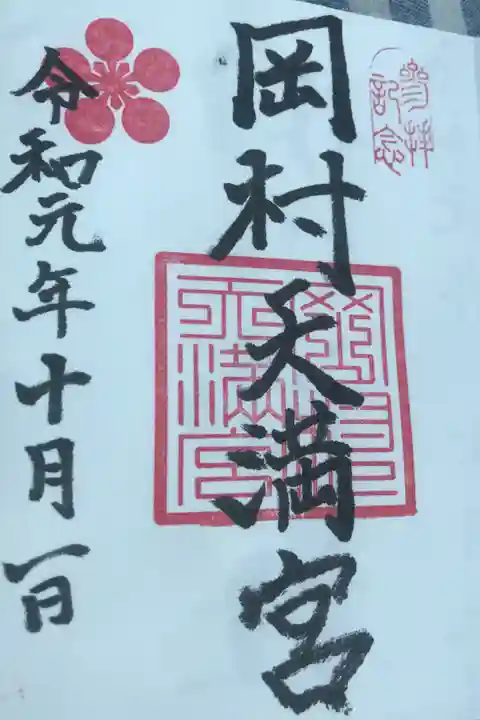 参拝
記念
岡村天満宮
天満宮
令和元年十月一日